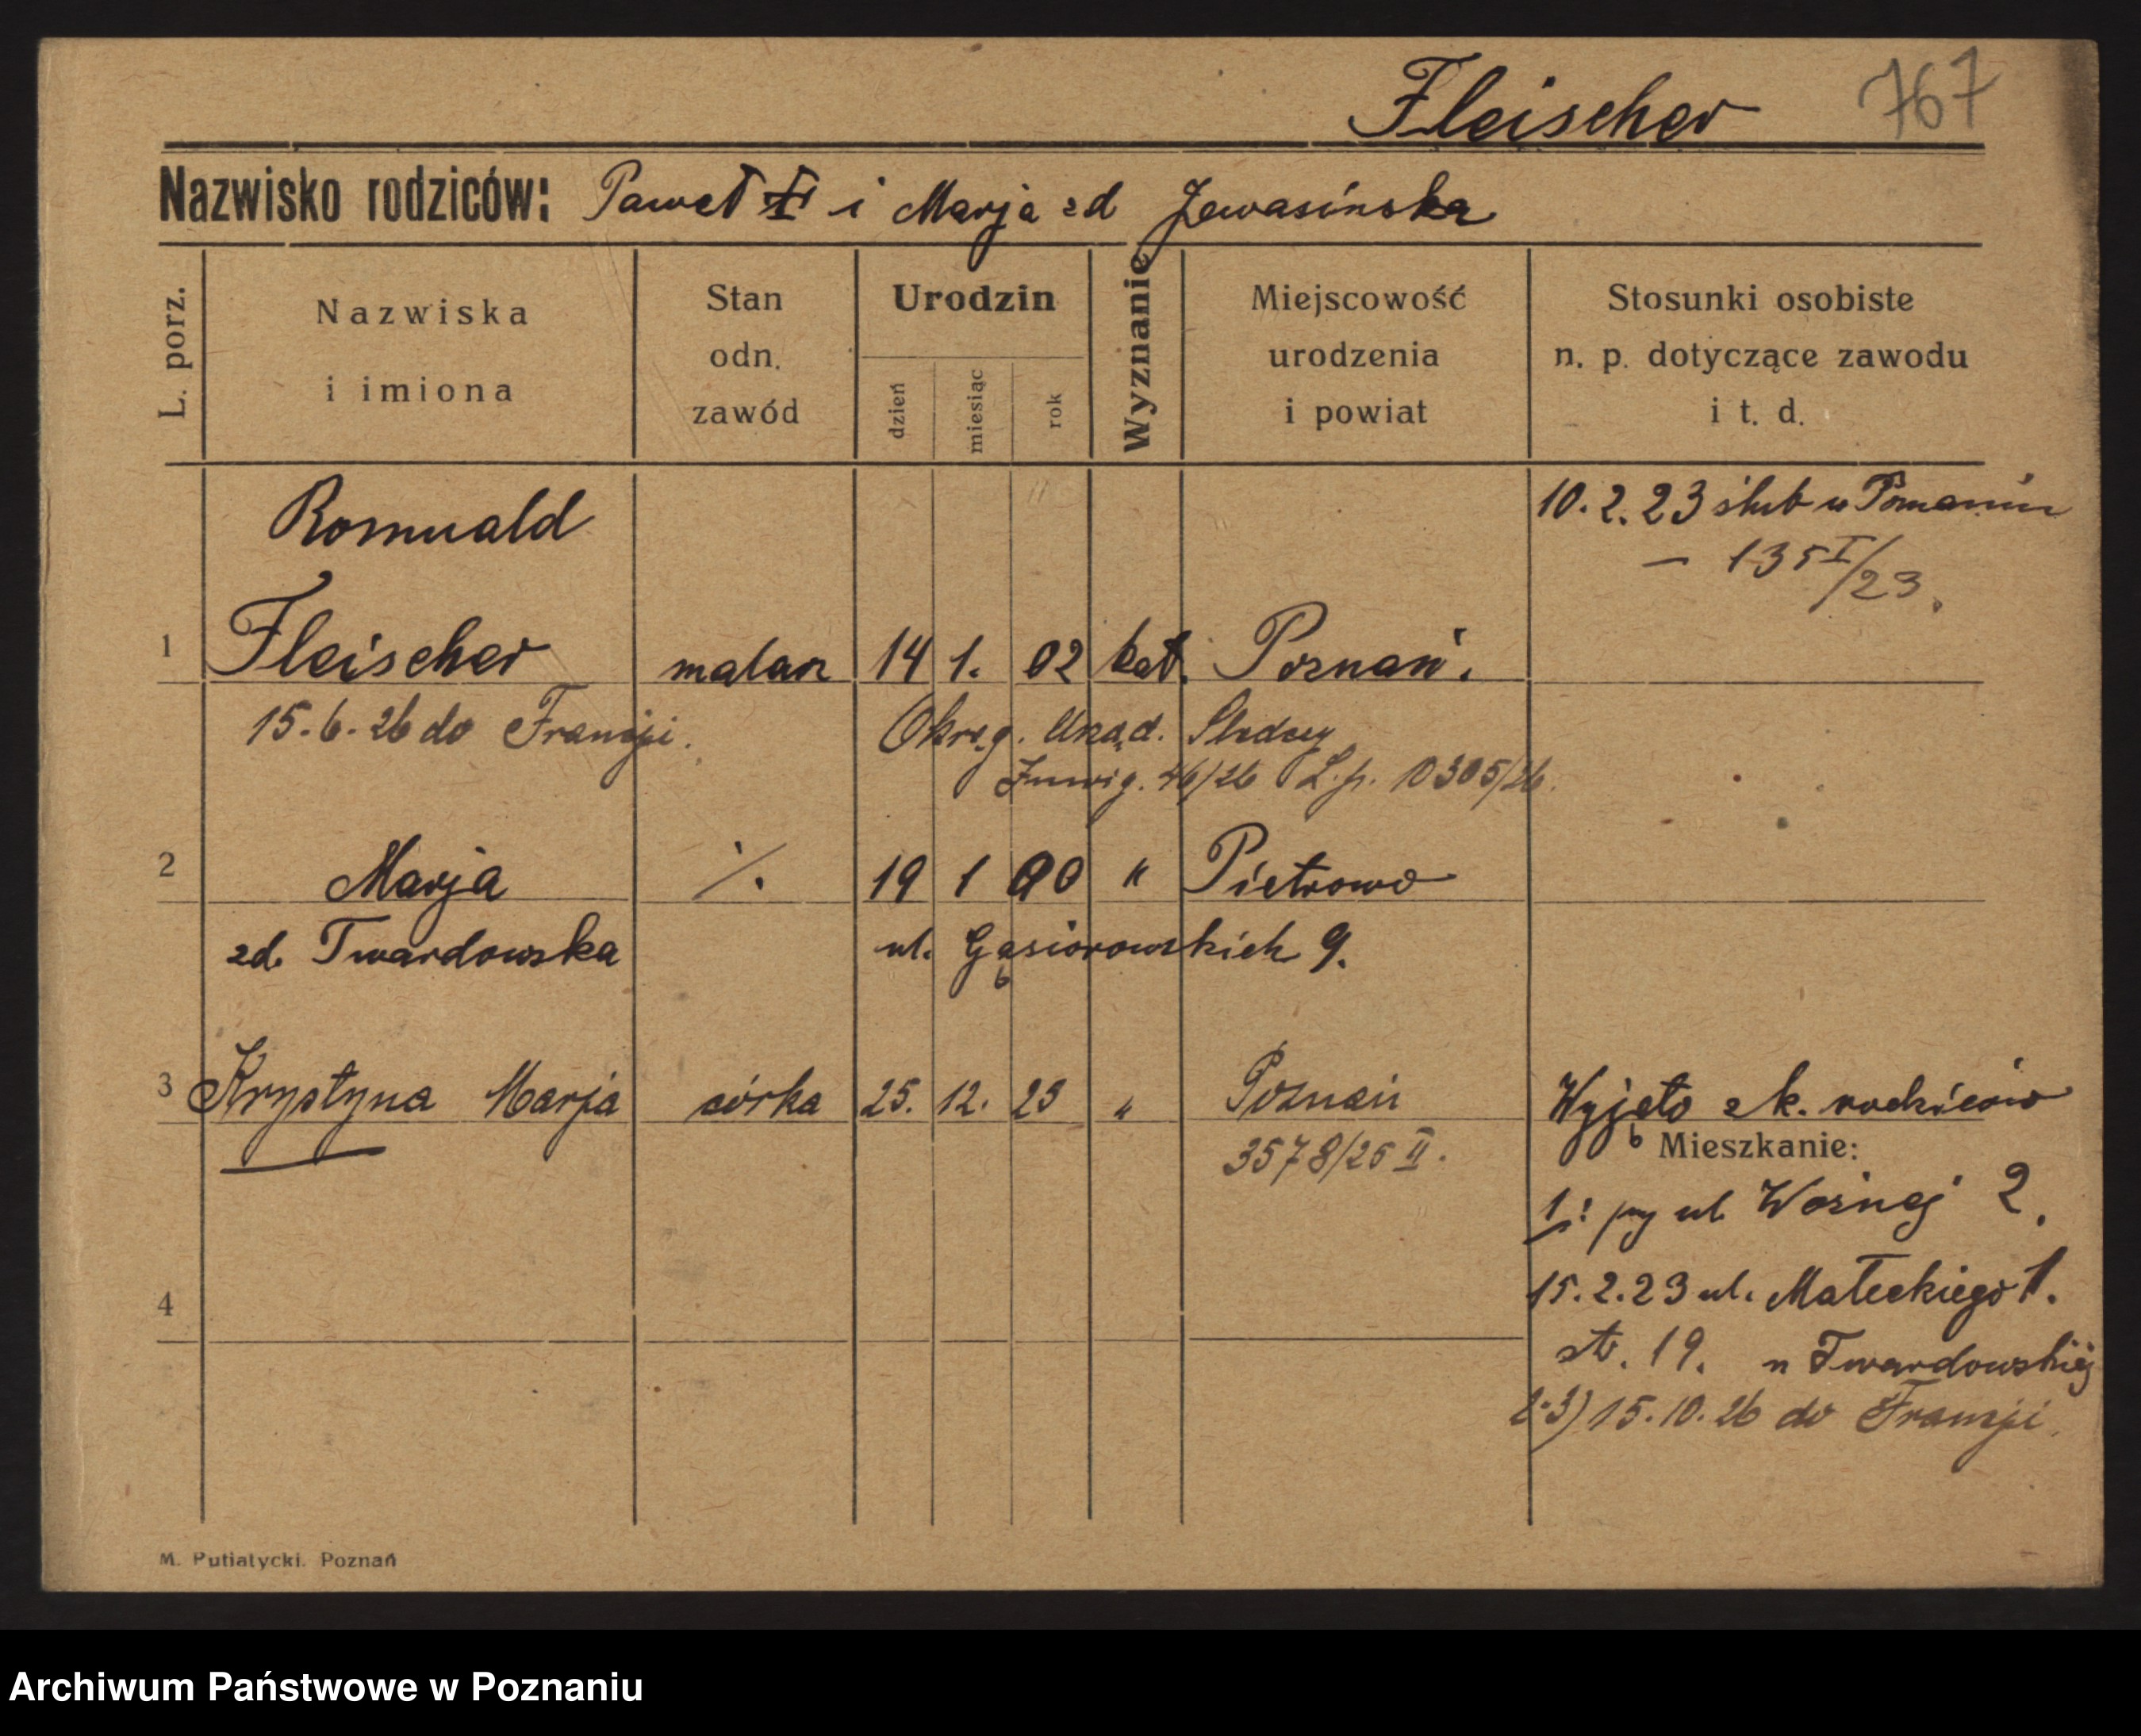 Fleischer 767
Nazwisko rodziców: Paweł F i Marja zd Jewasińska
L. porz.
Nazwiska
i imiona
Stan
odn.
zawód
Urodzin
dzień
miesiąc
rok
Wyznanie
Miejscowość
urodzenia
i powiat
Stosunki osobiste
n. p. dotyczące zawodu
i t. d.
10. 2. 23 ślub w Poznaniu
— 135 I/23.
Romuald
1 Fleischer malarz 14 1. 02 kat. Poznań.
15.-6.-26 do Francji. Okręg. Urząd. Śledczy
46/26 L.p. 10305/26.
2 Marja ·/. 19 1 00 " Pietrowo
zd. Twardowska ul. Gąsiorowskich 9.
3 Krystyna Marja córka 25. 12. 25 " Poznań Wyjęto z k. rodziców
3578/25 II.
Mieszkanie:
1: przy ul. Woźnej 2.
15. 2. 23 ul. Małeckiego 1.
4
str. 19. u Twardowskiej
2-3) 15. 10. 26 do Francji.
M. Putiatycki. Poznań
Archiwum Państwowe w Poznaniu